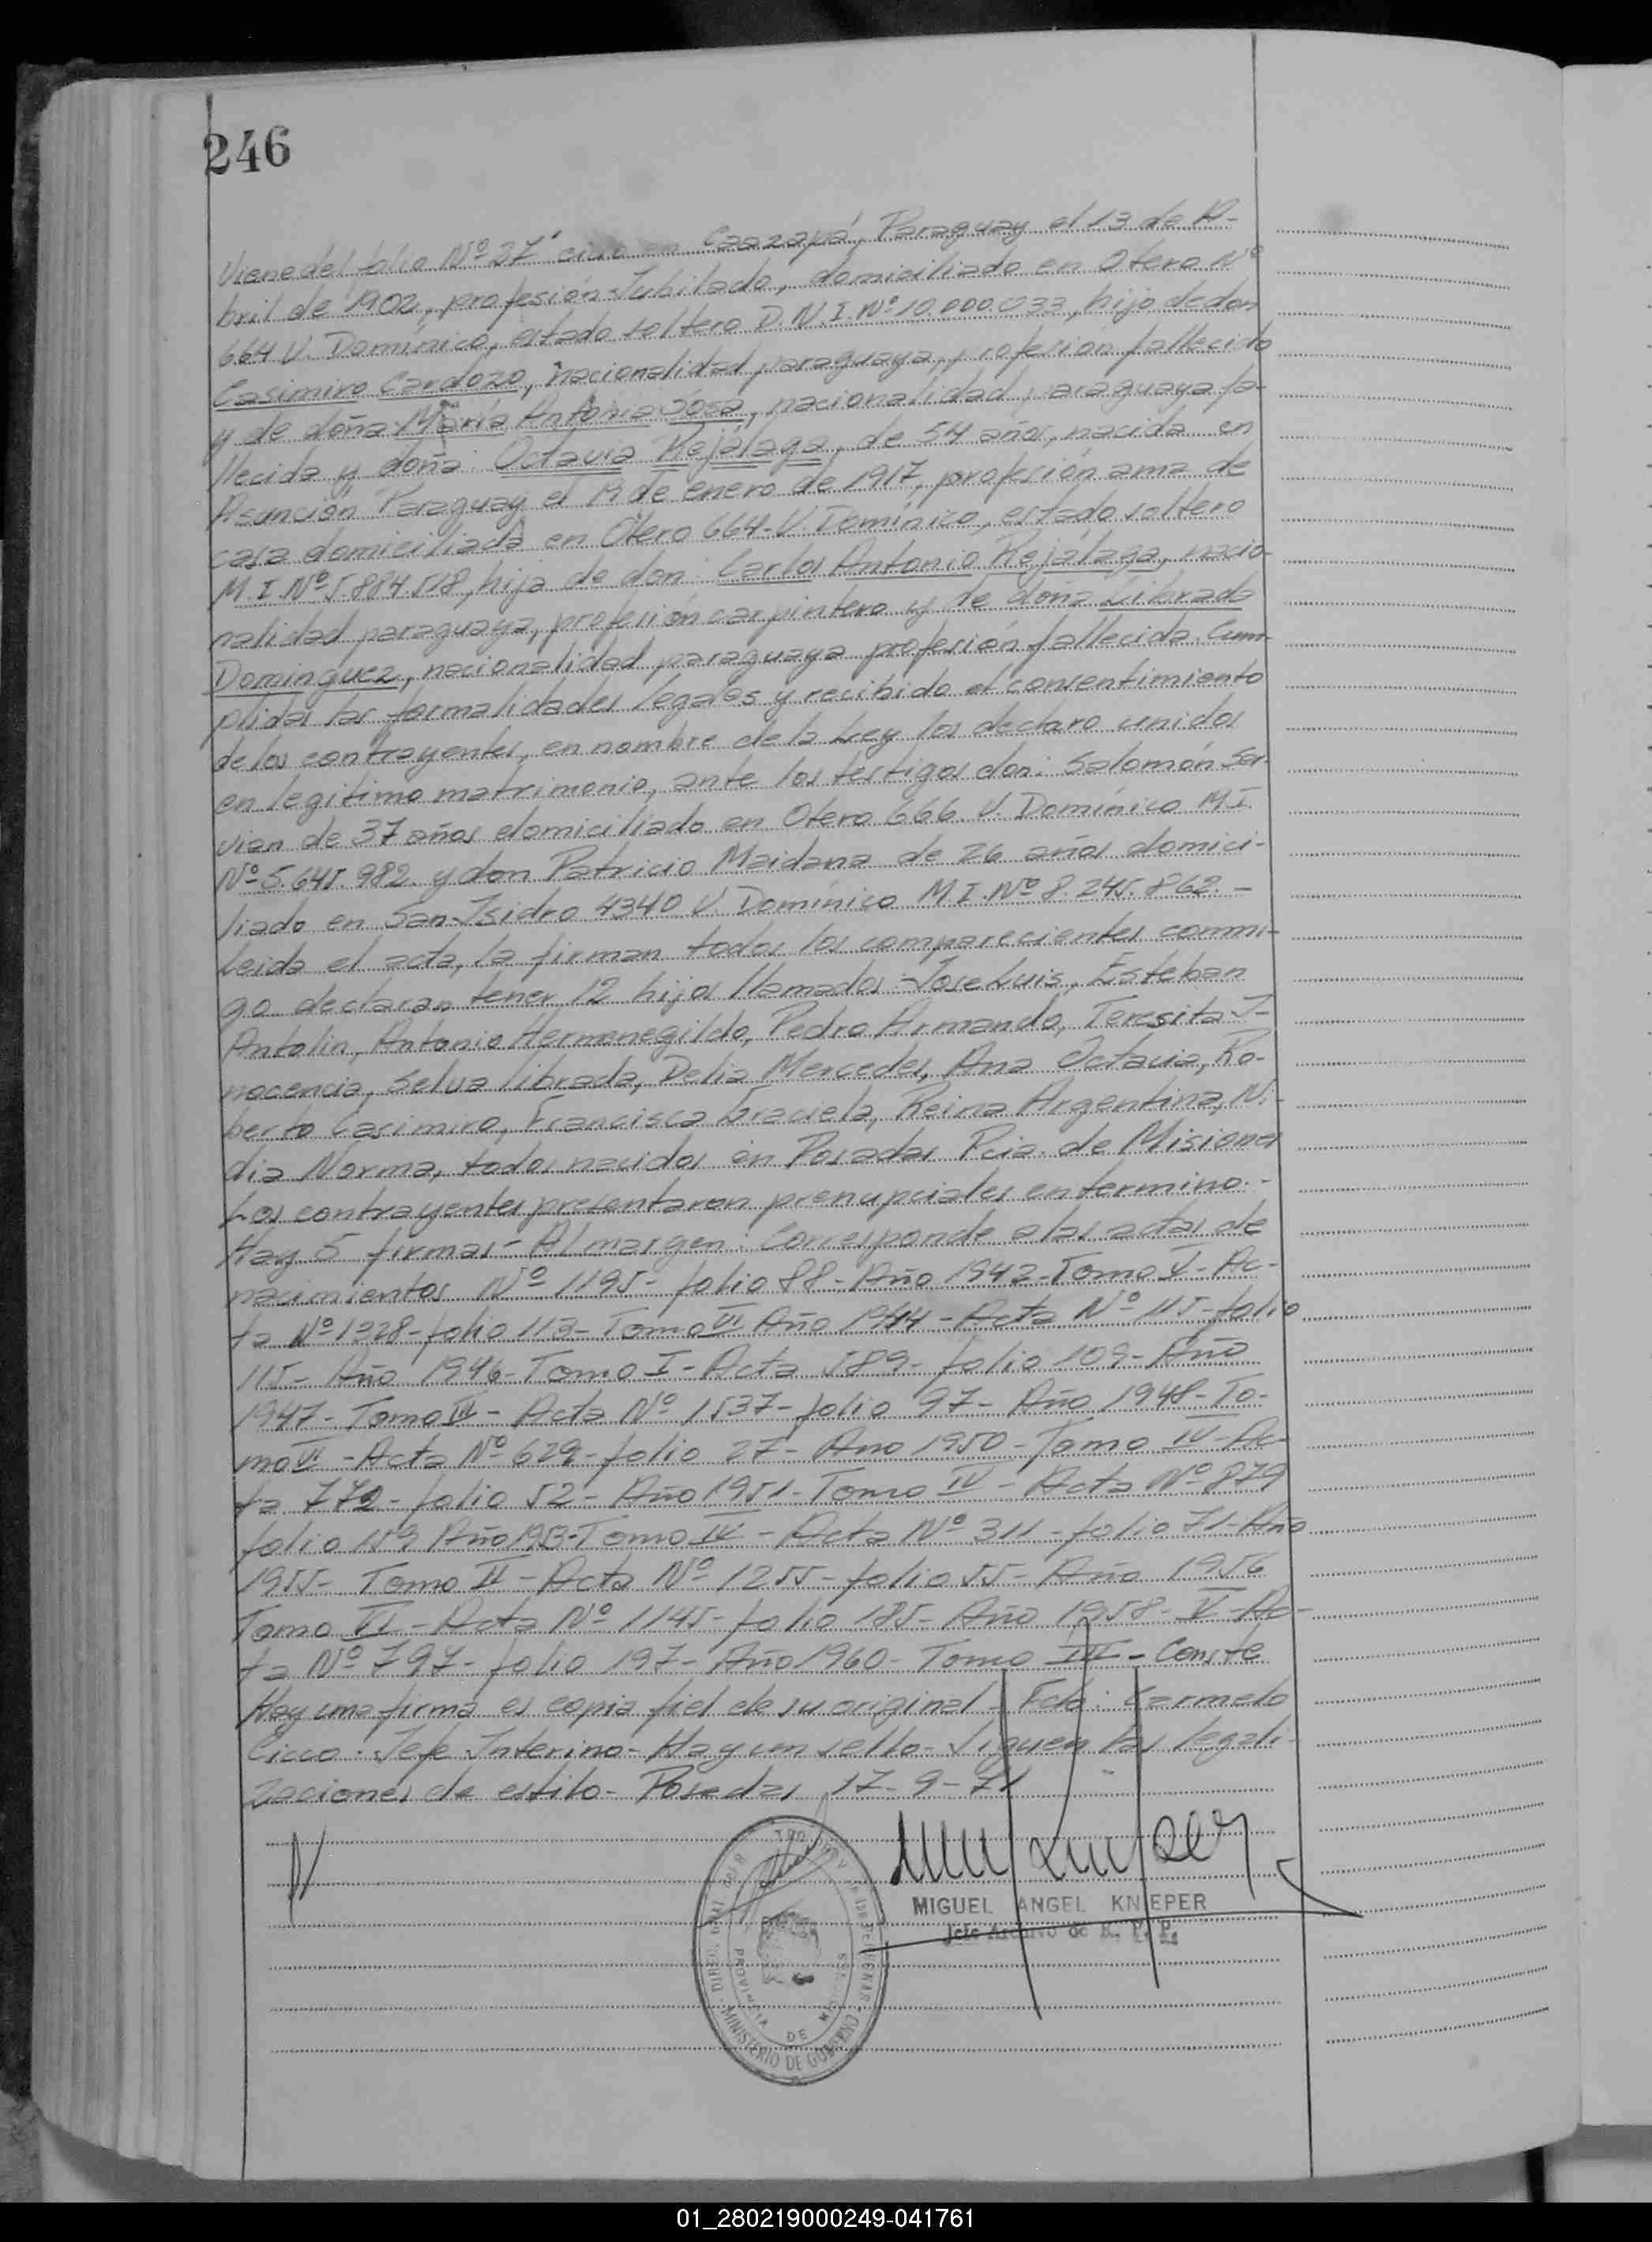 246
Viene del folio Nº 27" cido en Caazapá, Paraguay el 13 de A-
bril de 1902, profesión Jubilado, domiciliado en Otero Nº
664 V. Domínico, estado soltero D.N.I. Nº 10.000.033, hijo de don
Casimiro Cardozo, nacionalidad paraguaya, profesión fallecido
y de doña María Antonia Sosa, nacionalidad paraguaya fa-
llecida y doña: Octavia Rejálaga, de 54 años, nacida en
Asunción Paraguay el 19 de enero de 1917, profesión ama de
casa domiciliada en Otero 664-V. Domínico, estado soltero
M.I. Nº 5.884.518, hija de don: Carlos Antonio Rejálaga, nacio-
nalidad paraguaya, profesión carpintero y de doña Librada
Dominguez, nacionalidad paraguaya profesión fallecida. Cum-
plidas las formalidades legales y recibido el consentimiento
de los contrayentes, en nombre de la Ley los declaro unidos
en legitimo matrimonio, ante los testigos don: Salomón Ser-
vian de 37 años domiciliado en Otero 666 V. Domínico M.I.
Nº 5.645.982. y don Patricio Maidana de 26 años domici-
liado en San Isidro 4340 V. Domínico M.I. Nº 8.245.862.-
Leida el acta, la firman todos los comparecientes conmi-
go declaran tener 12 hijos llamados: Jose Luis, Esteban
Antolin, Antonio Hermenegildo, Pedro Armando, Teresita I-
nocencia, Selva Librada, Delia Mercedes, Ana Octavia, Ro-
berto Casimiro, Francisca Graciela, Reina Argentina, Ni-
dia Norma, todos nacidos en Posadas Pcia. de Misiones
Los contrayentes presentaron prenupciales en termino.-
Hay 5 firmas- Al margen: Corresponde a las actas de
nacimientos Nº 1195- folio 88- Año 1942- Tomo V- Ac-
ta Nº 1328- folio 113- Tomo VI Año 1944- Acta Nº 115- folio
115- Año 1946- Tomo I- Acta 589- folio 109- Año
1947- Tomo III- Acta Nº 1537- folio 97- Año 1948- To-
mo VI- Acta Nº 629- folio 27- Ano 1950- Tomo IV- Ac-
ta 772- folio 52- Año 1951- Tomo IV- Acta Nº 879
folio Año 1953- Tomo IV- Acta Nº 311- folio 71- Año
1955- Tomo II- Acta Nº 1255- folio 55- Año 1956
Tomo VI- Acta Nº 1145- folio 185- Año 1958- V- Ac-
ta Nº 797- folio 197- Año 1960- Tomo III- Conste
Hay una firma es copia fiel de su original- Fdo: Carmelo
Cicco- Jefe Interino- Hay un sello- Siguen las legali-
zaciones de estilo- Posadas, 17-9-71
MIGUEL ANGEL KNIEPER
Jefe Archivo de R. P. P.
MINISTERIO DE GOBIERNO
PROVINCIA DE
01_280219000249-041761